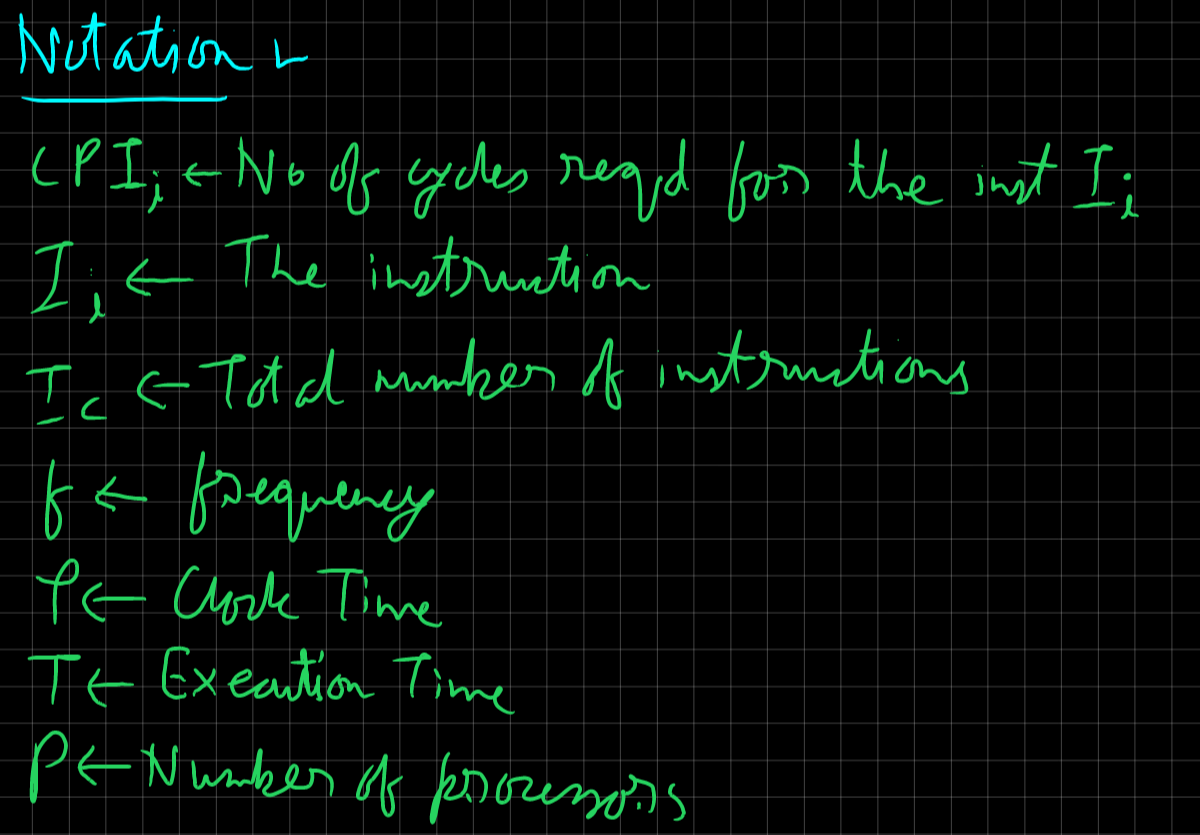 Notation :-
CPI_i ← No of cycles reqd for the inst I_i
I_i ← The instruction
I_c ← Total number of instructions
f ← frequency
τ ← Clock Time
T ← Execution Time
P ← Number of processors